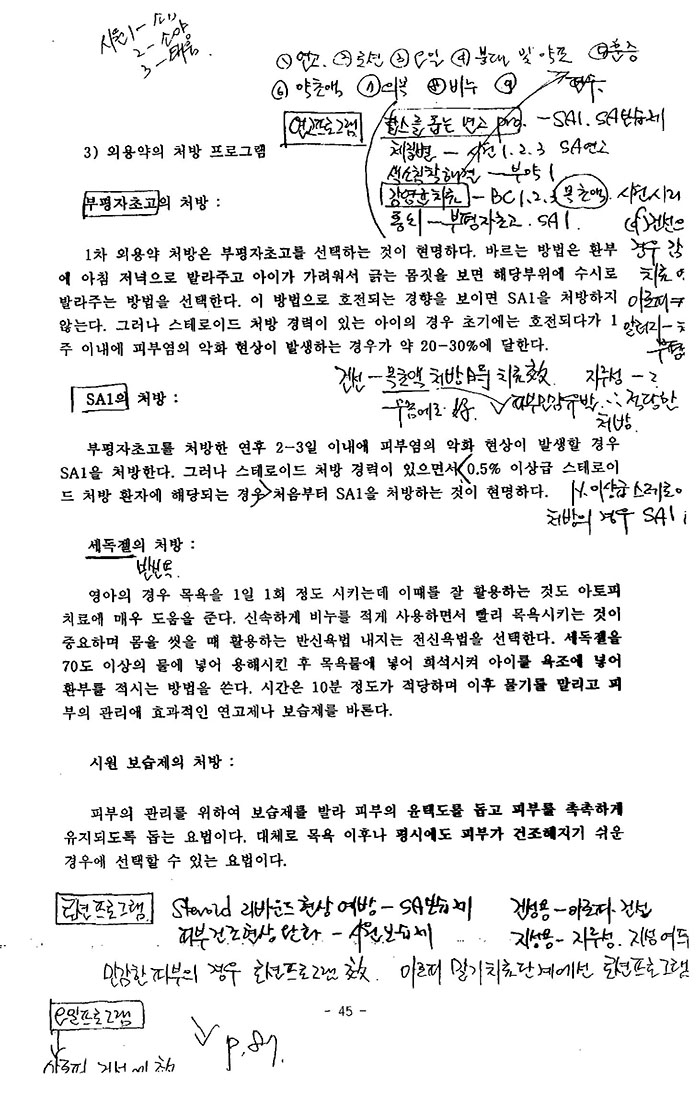 시원1 - 소
2 - 소양
3 - 태음
① 연고 ② 로션 ③ 오일 ④ 붕대 및 약포 ⑤ 훈증
⑥ 약초액 ⑦ 의복 ⑧ 비누 ⑨
연고프로그램
항스를 돕는 연고 pro. - SA1. SA보습제
체질별 - 시원1.2.3 SA연고
색소침착해결 - 부약1
감염균치료 - BC1.2.3 목초액
흉터 - 부평자초고. SA1.
3) 외용약의 처방 프로그램
부평자초고의 처방 :
1차 외용약 처방은 부평자초고를 선택하는 것이 현명하다. 바르는 방법은 환부
에 아침 저녁으로 발라주고 아이가 가려워서 긁는 몸짓을 보면 해당부위에 수시로
발라주는 방법을 선택한다. 이 방법으로 호전되는 경향을 보이면 SA1을 처방하지
않는다. 그러나 스테로이드 처방 경력이 있는 아이의 경우 초기에는 호전되다가 1
주 이내에 피부염의 악화 현상이 발생하는 경우가 약 20-30%에 달한다.
건선 - 목초액 처방 치료 지루성 - 2
피부민감유발 ∴ 적당한
처방.
SA1의 처방 :
부평자초고를 처방한 연후 2-3일 이내에 피부염의 악화 현상이 발생할 경우
SA1을 처방한다. 그러나 스테로이드 처방 경력이 있으면서 0.5% 이상급 스테로이
드 처방 환자에 해당되는 경우 처음부터 SA1을 처방하는 것이 현명하다.
이상급 스테로이
처방의 경우 SA1
세독젤의 처방 :
반신욕
영아의 경우 목욕을 1일 1회 정도 시키는데 이때를 잘 활용하는 것도 아토피
치료에 매우 도움을 준다. 신속하게 비누를 적게 사용하면서 빨리 목욕시키는 것이
중요하며 몸을 씻을 때 활용하는 반신욕법 내지는 전신욕법을 선택한다. 세독젤을
70도 이상의 물에 넣어 용해시킨 후 목욕물에 넣어 희석시켜 아이를 욕조에 넣어
환부를 적시는 방법을 쓴다. 시간은 10분 정도가 적당하며 이후 물기를 말리고 피
부의 관리에 효과적인 연고제나 보습제를 바른다.
시원 보습제의 처방 :
피부의 관리를 위하여 보습제를 발라 피부의 윤택도를 돕고 피부를 촉촉하게
유지되도록 돕는 요법이다. 대체로 목욕 이후나 평시에도 피부가 건조해지기 쉬운
경우에 선택할 수 있는 요법이다.
로션프로그램 Steroid 리바운드현상 예방 - SA보습제 건성용 - 아토피. 건선
피부건조현상 완화 - 시원보습제 지성용 - 지루성. 지성여드
민감한 피부의 경우 로션프로그램 아토피 말기치료단계에선 로션프로그램
- 45 -
오일프로그램
p.87.